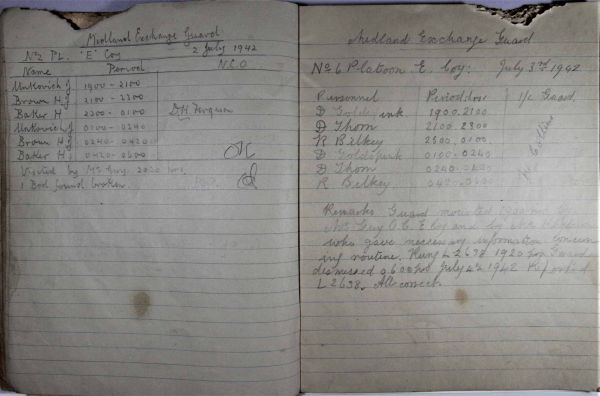 Midland Exchange Guard
No 2 PL. "E" Coy 2 July 1942
Name Period N.C.O
Unkovich J. 1900-2100
Brown H.J. 2100-2300
Baker H 2300-0100 D.H. Ferguson
Unkovich J 0100-0240
Brown H.J 0240-0420
Baker H. 0420-0600
Visited by Mr Guy. 2020 hrs.
1 Bed found broken.
Midland Exchange Guard
No 6 Platoon E. Coy: July 3rd 1942
Personnel Period of hour I/c Guard.
D Goldspink. 1900.2100
D Thom 2100.2300
R Bilkey 2300.0100
D Goldspink 0100-0240
D Thom 0240-0420
R Bilkey 0420-0600
Remarks Guard mounted by
Mr Guy O.C. E Coy and by
who gave necessary information concern
ing routine. Rung L2638 1920 hrs Guard
dismissed 0600 hrs July 4th 1942 Reported
L2638. All correct.